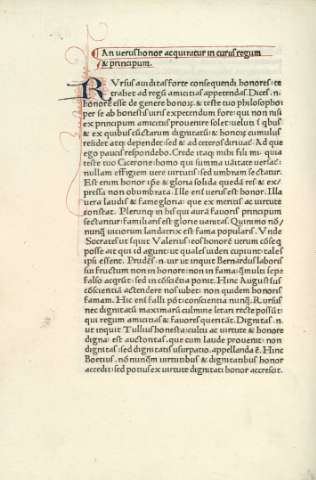 An uerus honor acquiratur in curiis regum
& principum.
Rursus auditas forte consequendi honores: te
trahet ad regū amicitias appetendas. Dices .n.
honorē esse de genere bonoꝝ. & teste tuo philosopho:
per se ab honestis uiris expetendum fore: qui non nisi
ex principum amicitiis prouenire solet: ueluti i qbus
& ex quibus cūctarum dignitatū: & honoꝝ cumulus
resideat atqꝫ dependet: sed & ad ceteros diriuat. Ad que
ego paucis respondebo. Crede itaqꝫ mihi fili mi. quia
teste tuo Cicerone: homo qui summa uāitate uersat:
nullam effigiem uere uirtutis: sed umbram sectatur.
Est enim honor ipse & gloria solida quedā res & ex
pressa non obumbrata. Ille eni uerus est honor. Illa
uera laudis & fame gloria: que ex meritis ac uirtute
constat. Plerunqꝫ in his qui aurā fauoris principum
sectantur: familiaris est glorie uanitas. Quinimo nō
nunqꝫ uiciorum landatrix est fama popularis. Unde
Socrates ut scripsit Valerius: eos honorē uerum cōseq
posse ait: qui id agunt: ut qualis uideri cupiunt: tales
ipsi essent. Prudēs .n. uir ut inquit Bernardus laboris
sui fructum non in honore: non in fama: qꝫ multis sepe
falso acqritur: sed in cōsciētia ponit. Hinc Augustinus
cōscientiā actendere nos iubet: non quidem honoris
famam. Hic eni falli pōt: conscientia nunqꝫ. Rursus
nec dignitatū maximarū culmine letari recte possūt:
qui regum amicitias & fauores queritāt. Dignitas .n.
ut inquit Tullius honesta: cultu ac uirtute & honore
digna: est auctoritas. que cum laude prouenit: non
dignitas: sed dignitatis usurpatio. appellanda ē. Hinc
Boetius. nō nunqꝫ uirtutibus & dignitatibus honor
accedit: sed potius ex uirtute dignitati honor accrescit.